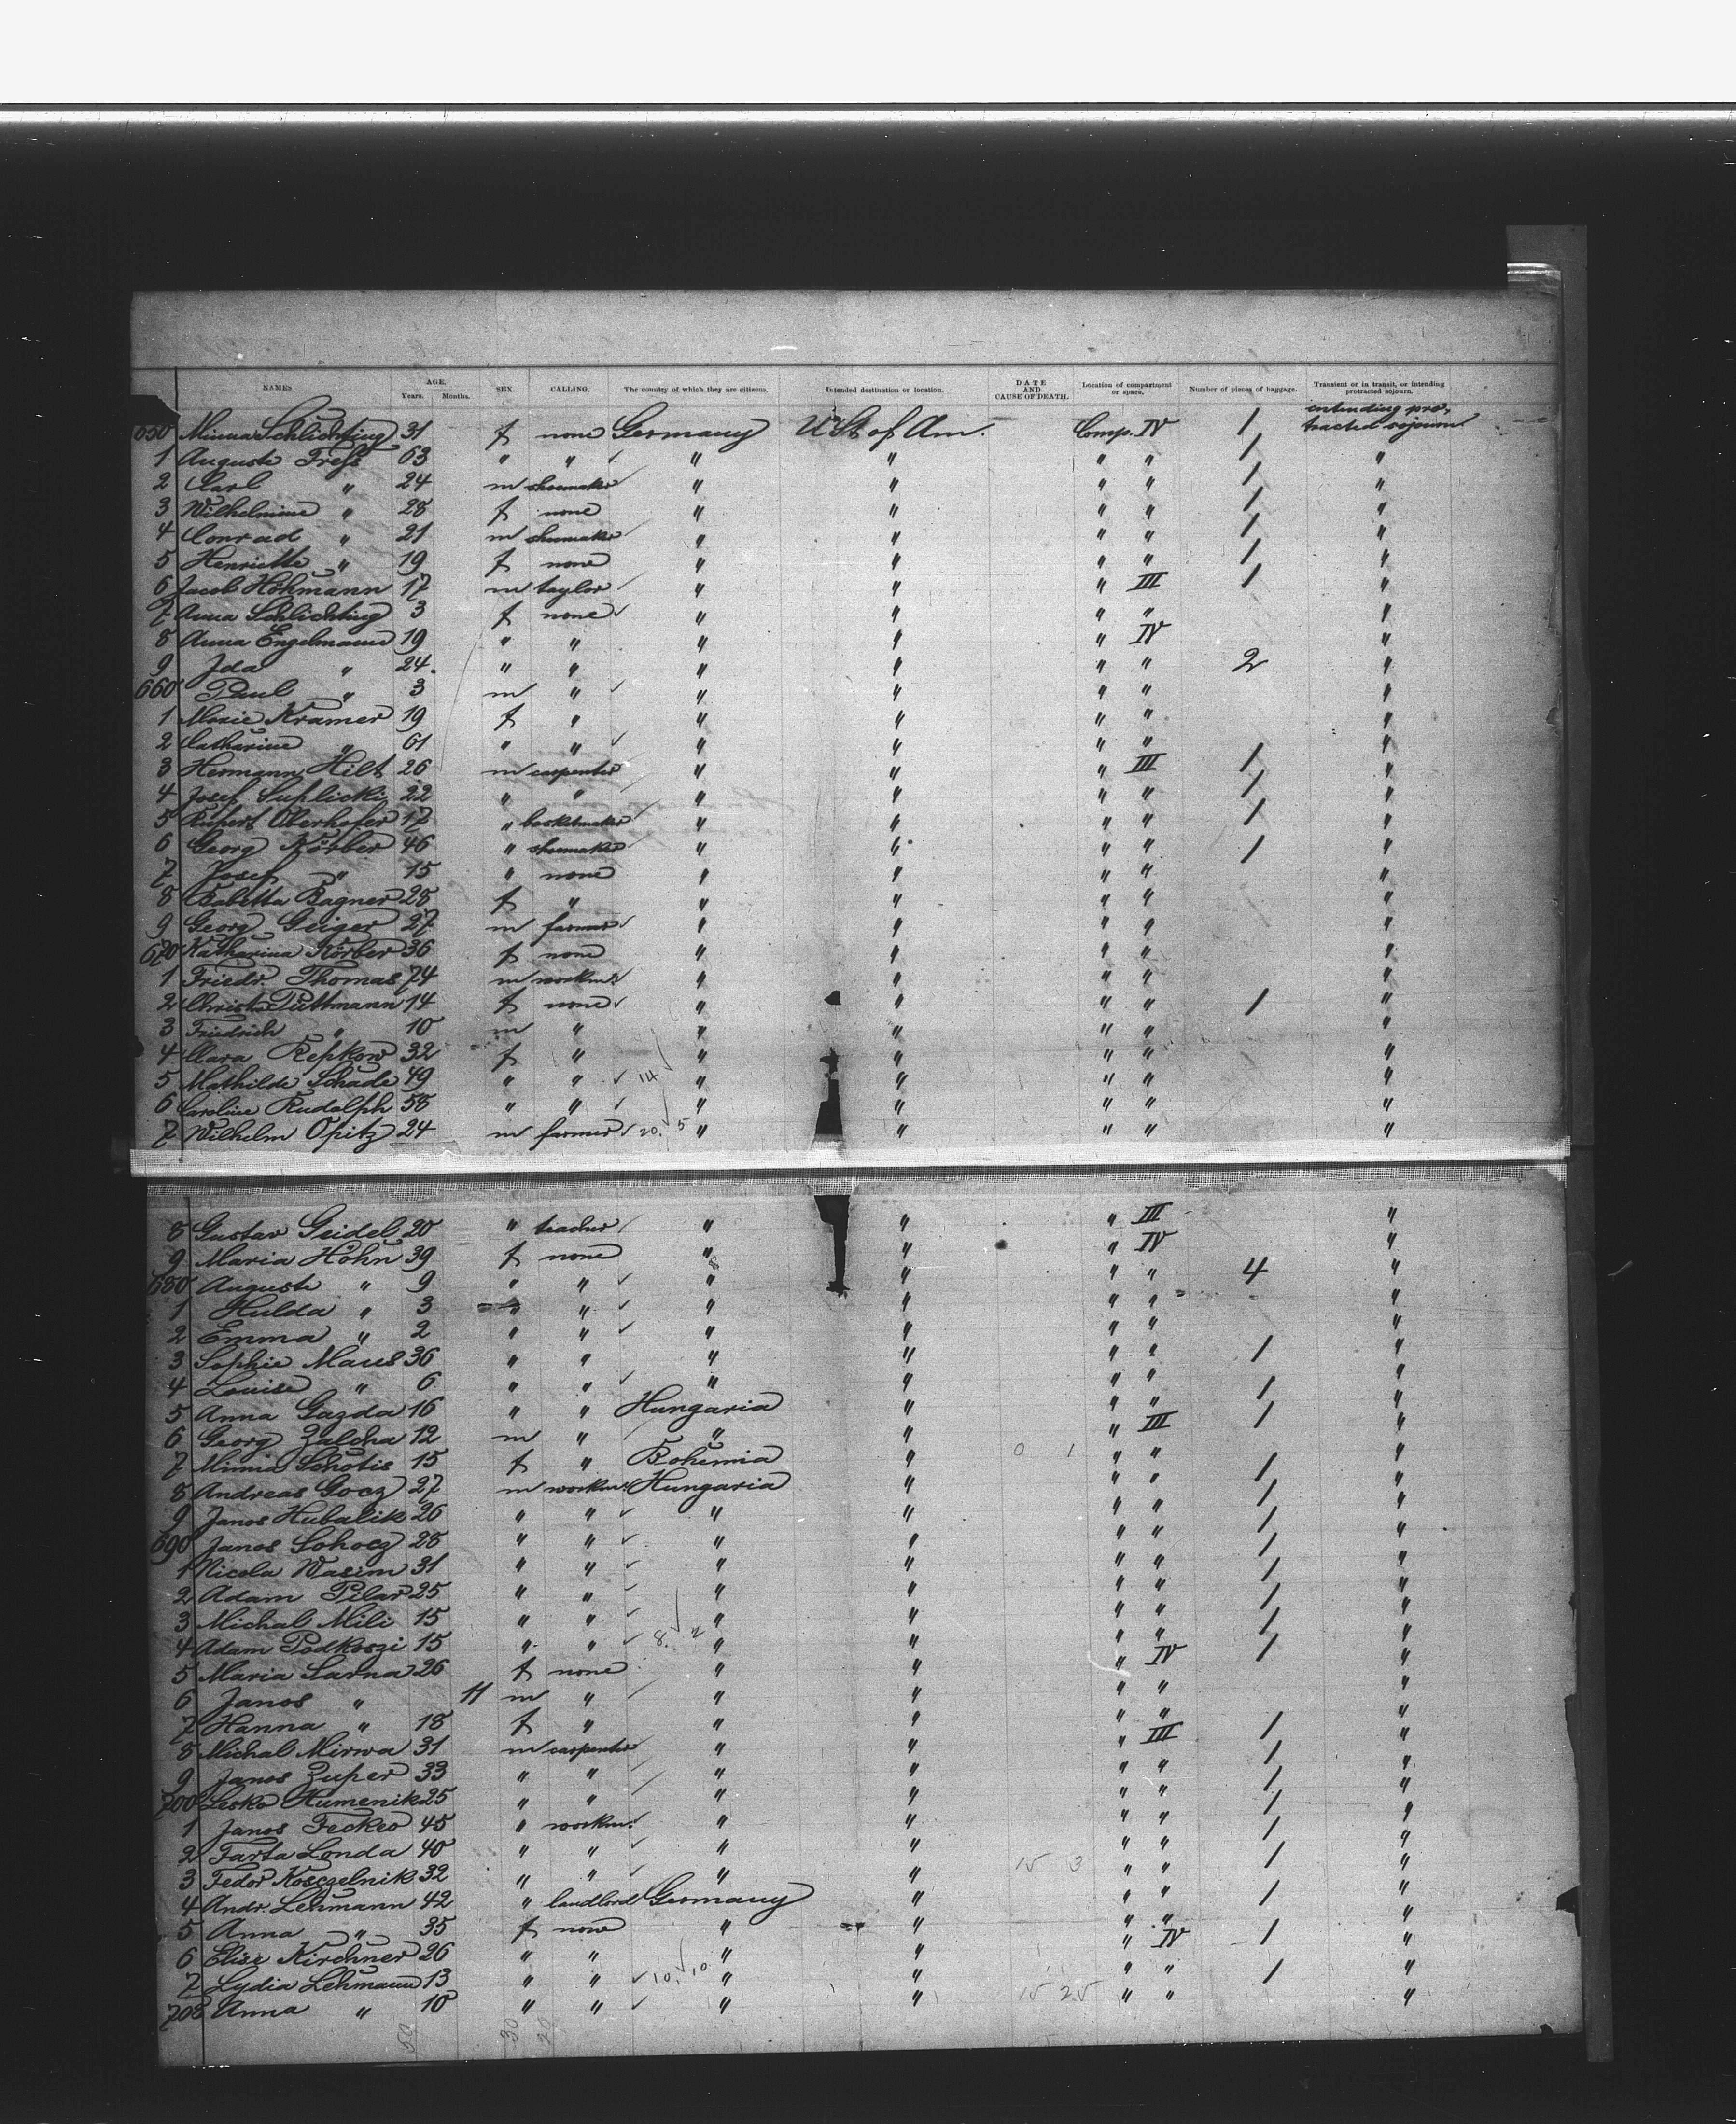 NAMES AGE. Years. Months. SEX. CALLING. The country of which they are citizens. Intended destination or location. DATE AND CAUSE OF DEATH. Location of compartment or space. Number of pieces of baggage. Transient or in transit, or intending protracted sojourn.
650 Minna Schlichting 31 f none Germany U St of Am. Comp. IV 1 intending protracted sojourn
1 Auguste Tress 63 " " " " " " 1 "
2 Carl " 24 m shoemaker " " " " 1 "
3 Wilhelmine " 28 f none " " " " 1 "
4 Conrad " 21 m shoemaker " " " " 1 "
5 Henriette " 19 f none " " " " 1 "
6 Jacob Höhmann 17 m taylor " " " III 1 "
7 Anna Schlichting 3 f none " " " " "
8 Anna Engelmann 19 " " " " " IV "
9 Ida " 24 " " " " " " 2 "
660 Paul " 3 m " " " " " "
1 Marie Kramer 19 f " " " " " "
2 Catharine " 61 " " " " " " "
3 Hermann Hilt 26 m carpenter " " " III 1 "
4 Josef Suplicki 22 " " " " " " 1 "
5 Rupert Oberhofer 17 " basketmaker " " " " 1 "
6 Georg Körber 46 " shoemaker " " " " 1 "
7 Josef " 15 " none " " " " "
8 Babetta Bagner 28 f " " " " " "
9 Georg Geiger 27 m farmer " " " " "
670 Katharina Körber 36 f none " " " " "
1 Friedr. Thomas 74 m workm. " " " " "
2 Christ. Püttmann 14 f none " " " " 1 "
3 Friedrich " 10 m " " " " " "
4 Clara Repkow 32 f " " " " " "
5 Mathilde Schade 49 " " 14 " " " " "
6 Caroline Rudolph 58 " " " " " " "
7 Wilhelm Opitz 24 m farmer 20. 5 " " " " "
8 Gustav Geidel 20 " teacher " " " III "
9 Maria Höhn 39 f none " " " IV "
680 Auguste " 9 " " " " " " 4 "
1 Hulda " 3 " " " " " " "
2 Emma " 2 " " " " " " "
3 Sophie Maus 36 " " " " " " 1 "
4 Louise " 6 " " " " " " "
5 Anna Gazda 16 " " Hungaria " " " 1 "
6 Georg Zalcha 12 m " " " " III 1 "
7 Minnia Schotis 15 f " Bohemia " 0 1 " " "
8 Andreas Gocz 27 m workm. Hungaria " " " 1 "
9 Janos Hubalik 26 " " " " " " 1 "
690 Janos Sohocz 28 " " " " " " 1 "
1 Nicola Wasim 31 " " " " " " 1 "
2 Adam Pilar 25 " " " " " " 1 "
3 Michal Mili 15 " " " " " " 1 "
4 Adam Podkoszi 15 " " 8. 2 " " " " 1 "
5 Maria Sarna 26 f none " " " IV 1 "
6 Janos " 11 m " " " " " "
7 Hanna " 18 f " " " " " "
8 Michal Mirwa 31 m carpenter " " " III 1 "
9 Janos Zuper 33 " " " " " " 1 "
700 Lesko Humenik 25 " " " " " " 1 "
1 Janos Feckeo 45 " workm. " " " " 1 "
2 Tarta Londa 40 " " " " " " 1 "
3 Fedor Kosczelnik 32 " " " " 15 3 " " 1 "
4 Andr. Lehmann 42 " landlord Germany " " " 1 "
5 Anna " 35 f none " " " IV 1 "
6 Elise Kirchner 26 " " " " " " "
7 Lydia Lehmann 13 " " 10. 10 " " " " 1 "
708 Anna " 10 " " " " 15 25 " " "
50 30 20